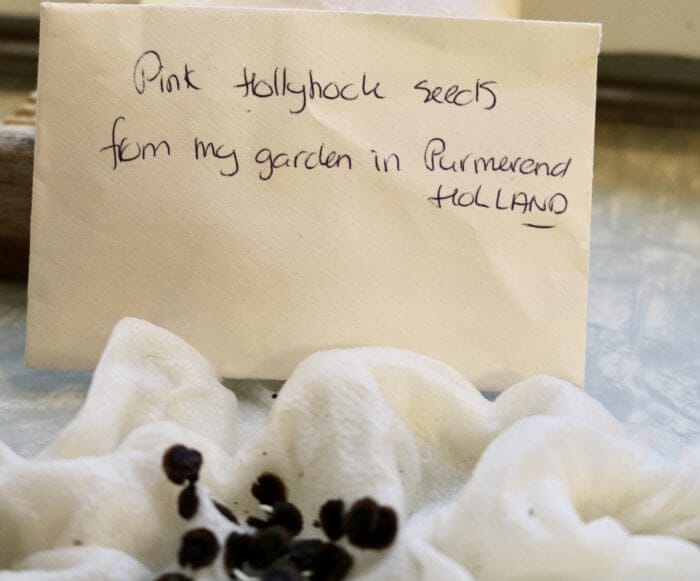 Pink Hollyhock seeds
from my garden in Purmerend
HOLLAND